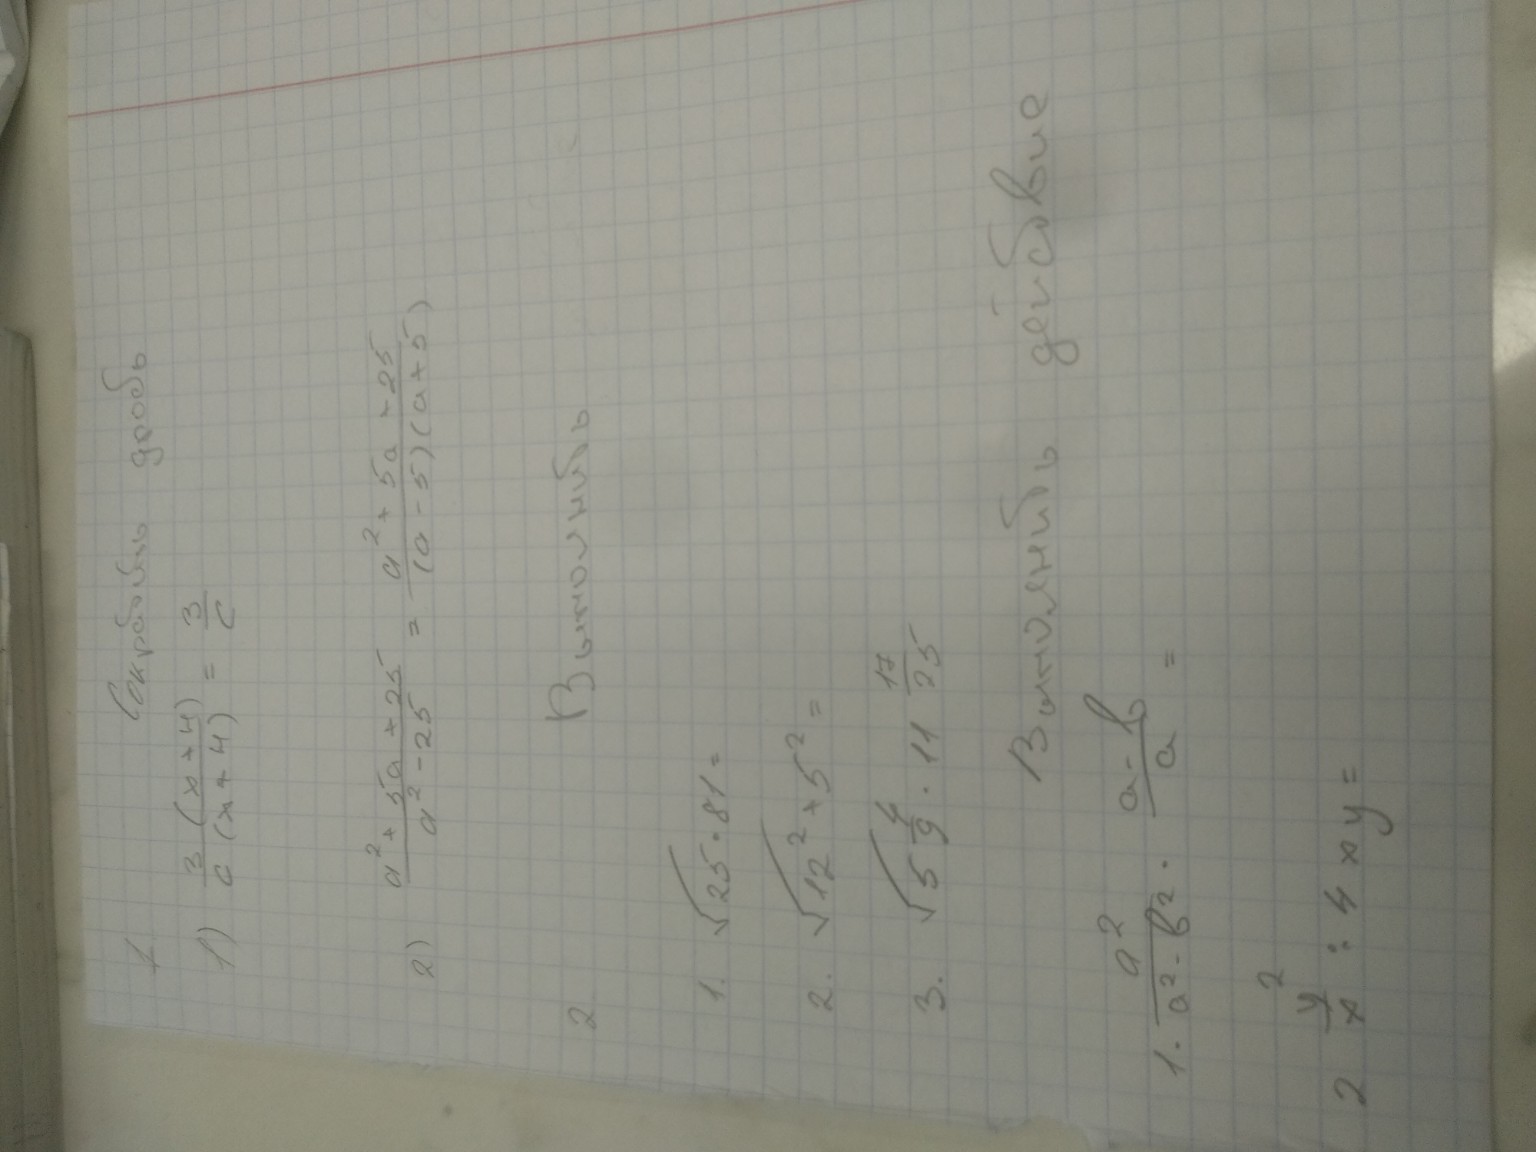 1 Сократить дробь
1) 3(x+4)/c(x+4) = 3/c
2) a²+5a+25/a²-25 = a²+5a+25/(a-5)(a+5)
2 Выполнить
1. √25·81=
2. √12²+5²=
3. √5 4/9 · 11 17/25
Выполнить действие
1. a²/a²-b² · a-b/a =
2 y²/x : 4xy=